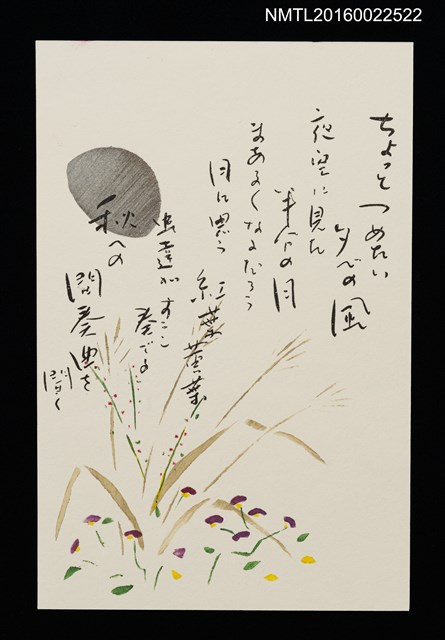 NMTL20160022522
ちょっと つめたい
夕べの風
夜空に見た
半分の月
まあるくなるだろう
月に思う
紅葉 黄葉
虫達が すこし
奏でる
秋への
間奏曲を
聞く